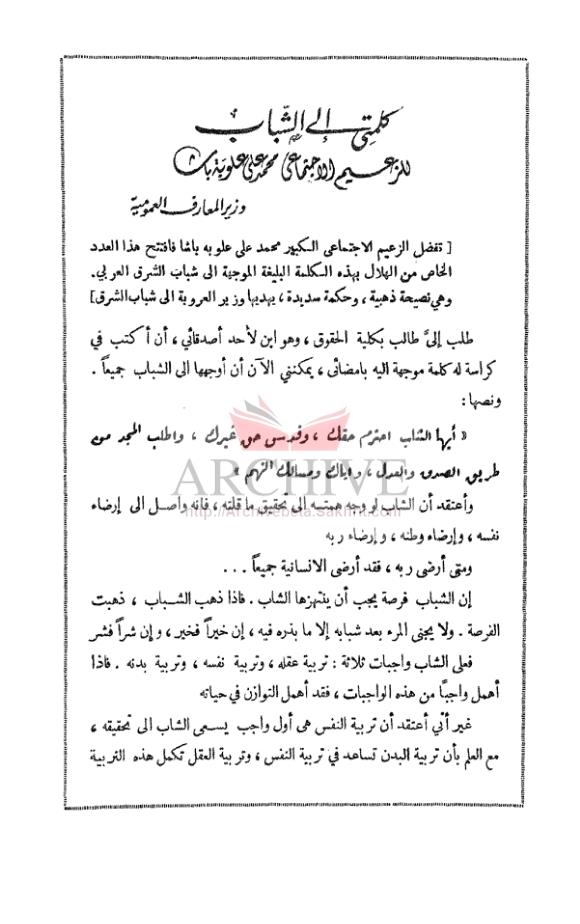 كلمتي إلى الشباب
للزعيم الاجتماعي محمد علي علوبة باشا
وزير المعارف العمومية
[ تفضل الزعيم الاجتماعى الكبير محمد على علوبه باشا فافتتح هذا العدد
الخاص من الهلال بهذه الكلمة البليغة الموجهة الى شباب الشرق العربي.
وهي نصيحة ذهبية ، وحكمة سديدة ، يهديها وزير العروبة الى شباب الشرق]
طلب إليَّ طالب بكلية الحقوق ، وهو ابن لأحد أصدقائي ، أن أكتب في
كراسة له كلمة موجهة اليه بامضائى ، يمكنني الآن أن أوجهها الى الشباب جميعاً .
ونصها :
« أيها الشاب احترم حقك ، وقدس حق غيرك ، واطلب المجد من
طريق الصدق والعدل ، واياك ومسالك التهم »
ARCHIVE
http://Archivebeta.Sakhrit.com
وأعتقد أن الشاب لو وجه همته الى تحقيق ما قلته ، فانه واصل الى إرضاء
نفسه ، وإرضاء وطنه ، وإرضاء ربه
ومتى أرضى ربه ، فقد أرضى الانسانية جميعاً . . .
إن الشباب فرصة يجب أن ينتهزها الشاب . فاذا ذهب الشباب ، ذهبت
الفرصة . ولا يجنى المرء بعد شبابه إلا ما بذره فيه ، إن خيراً فخير ، وإن شراً فشر
فعلى الشاب واجبات ثلاثة : تربية عقله ، وتربية نفسه ، وتربية بدنه . فاذا
أهمل واجباً من هذه الواجبات ، فقد أهمل التوازن في حياته
غير أني أعتقد أن تربية النفس هى أول واجب يسعى الشاب الى تحقيقه ،
مع العلم بأن تربية البدن تساعد في تربية النفس ، وتربية العقل تكمل هذه التربية